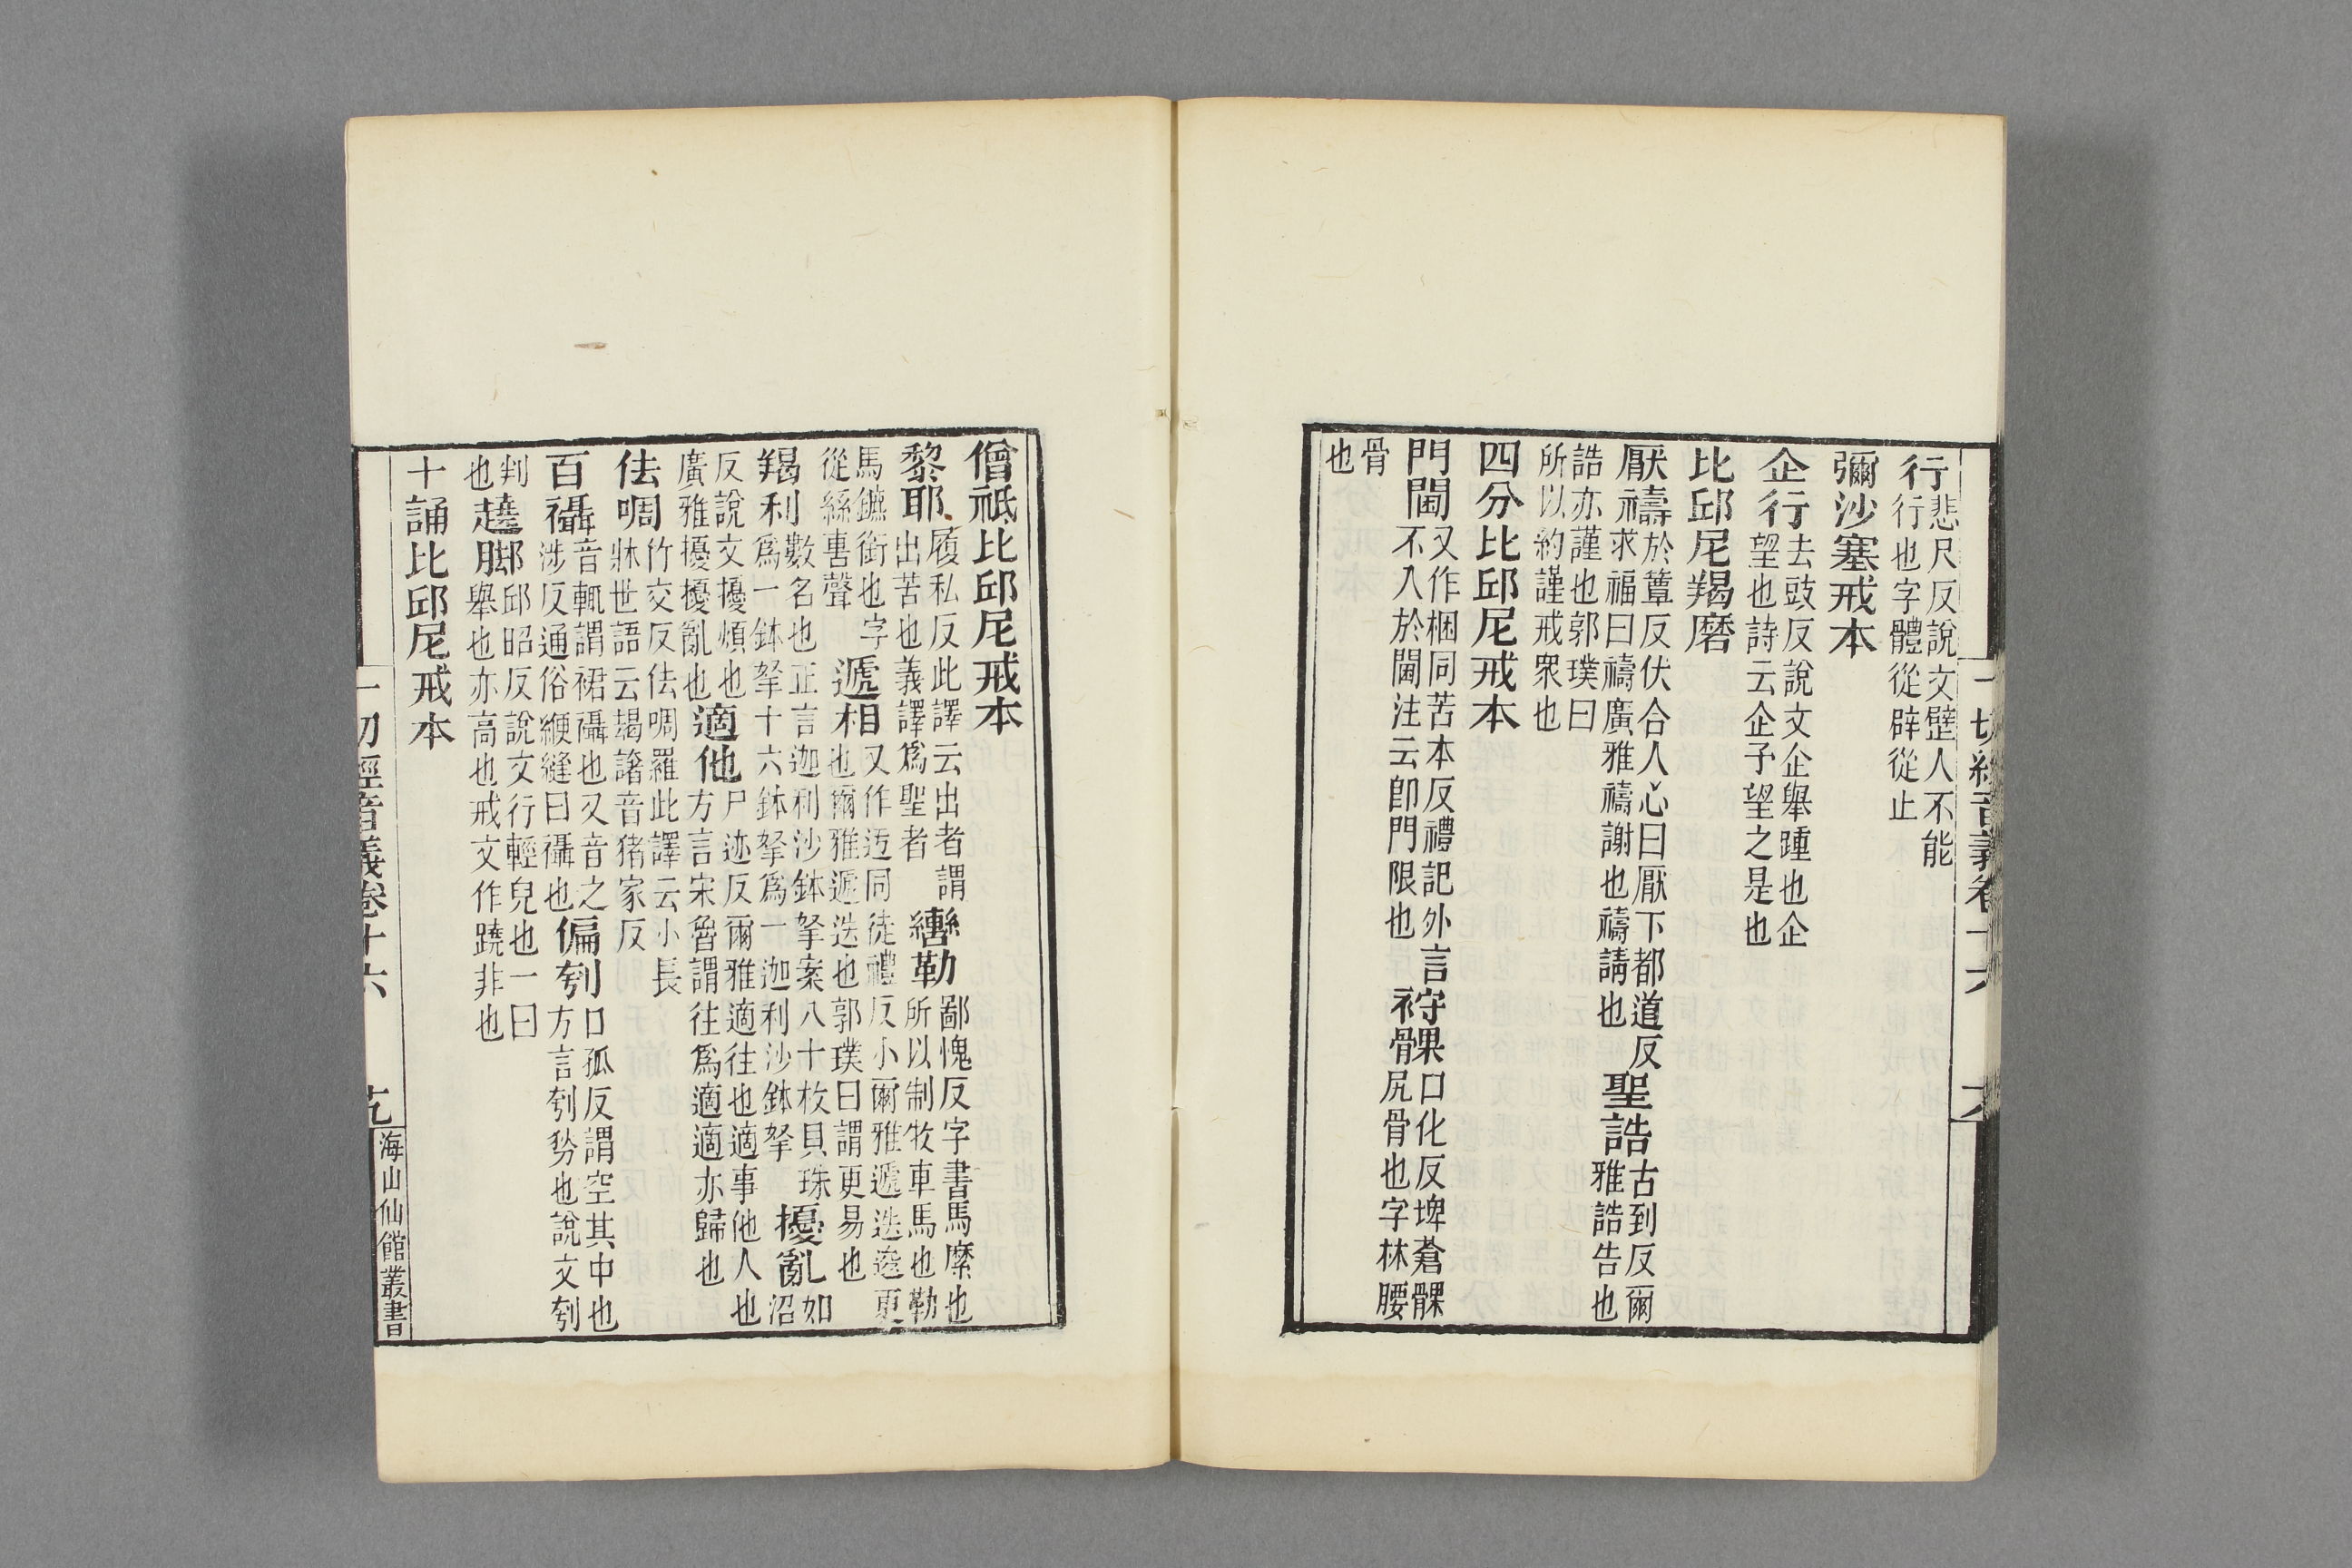 行悲尺反說文躄人不能
行也字體從辟從止
彌沙塞戒本
企行去豉反說文企舉踵也企
望也詩云企予望之是也
比邱尼羯磨
厭禱於簟反伏合人心曰厭下都道反
求福曰禱廣雅禱謝也禱請也
聖誥古到反爾
雅誥告也
誥亦謹也郭璞曰
所以約謹戒眾也
四分比邱尼戒本
門閫又作梱同苦本反禮記外言
不入於閫注云卽門限也
骻骨口化反埤蒼髁
尻骨也字林腰
骨
也
一切經音義卷十六
僧祗比邱尼戒本
黎耶履私反此譯云出者謂
出苦也義譯爲聖者
轡勒鄙愧反字書馬縻也
所以制牧車馬也勒
馬鑣銜也字
從絲軎聲
遞相又作迊同徒禮反小爾雅遞迭逵更
也爾雅遞迭也郭璞曰謂更易也
羯利數名也正言迦利沙鉢拏案八十枚貝珠
爲一鉢拏十六鉢拏爲一迦利沙鉢拏
擾亂如
沼
反說文擾煩也
廣雅擾擾亂也
適他尸迹反爾雅適往也適事他人也
方言宋魯謂往爲適適亦歸也
佉啁竹交反佉啁羅此譯云小長
牀世語云朅譇音猪家反
百襵音輒謂裙襵也又音之
涉反通俗緶縫曰襵也
偏刳口孤反謂空其中也
方言刳㓟也說文刳
判
也
趬腳邱昭反說文行輕皃也一曰
舉也亦高也戒文作蹺非也
十誦比邱尼戒本
一切經音義卷十六
海山仙館叢書